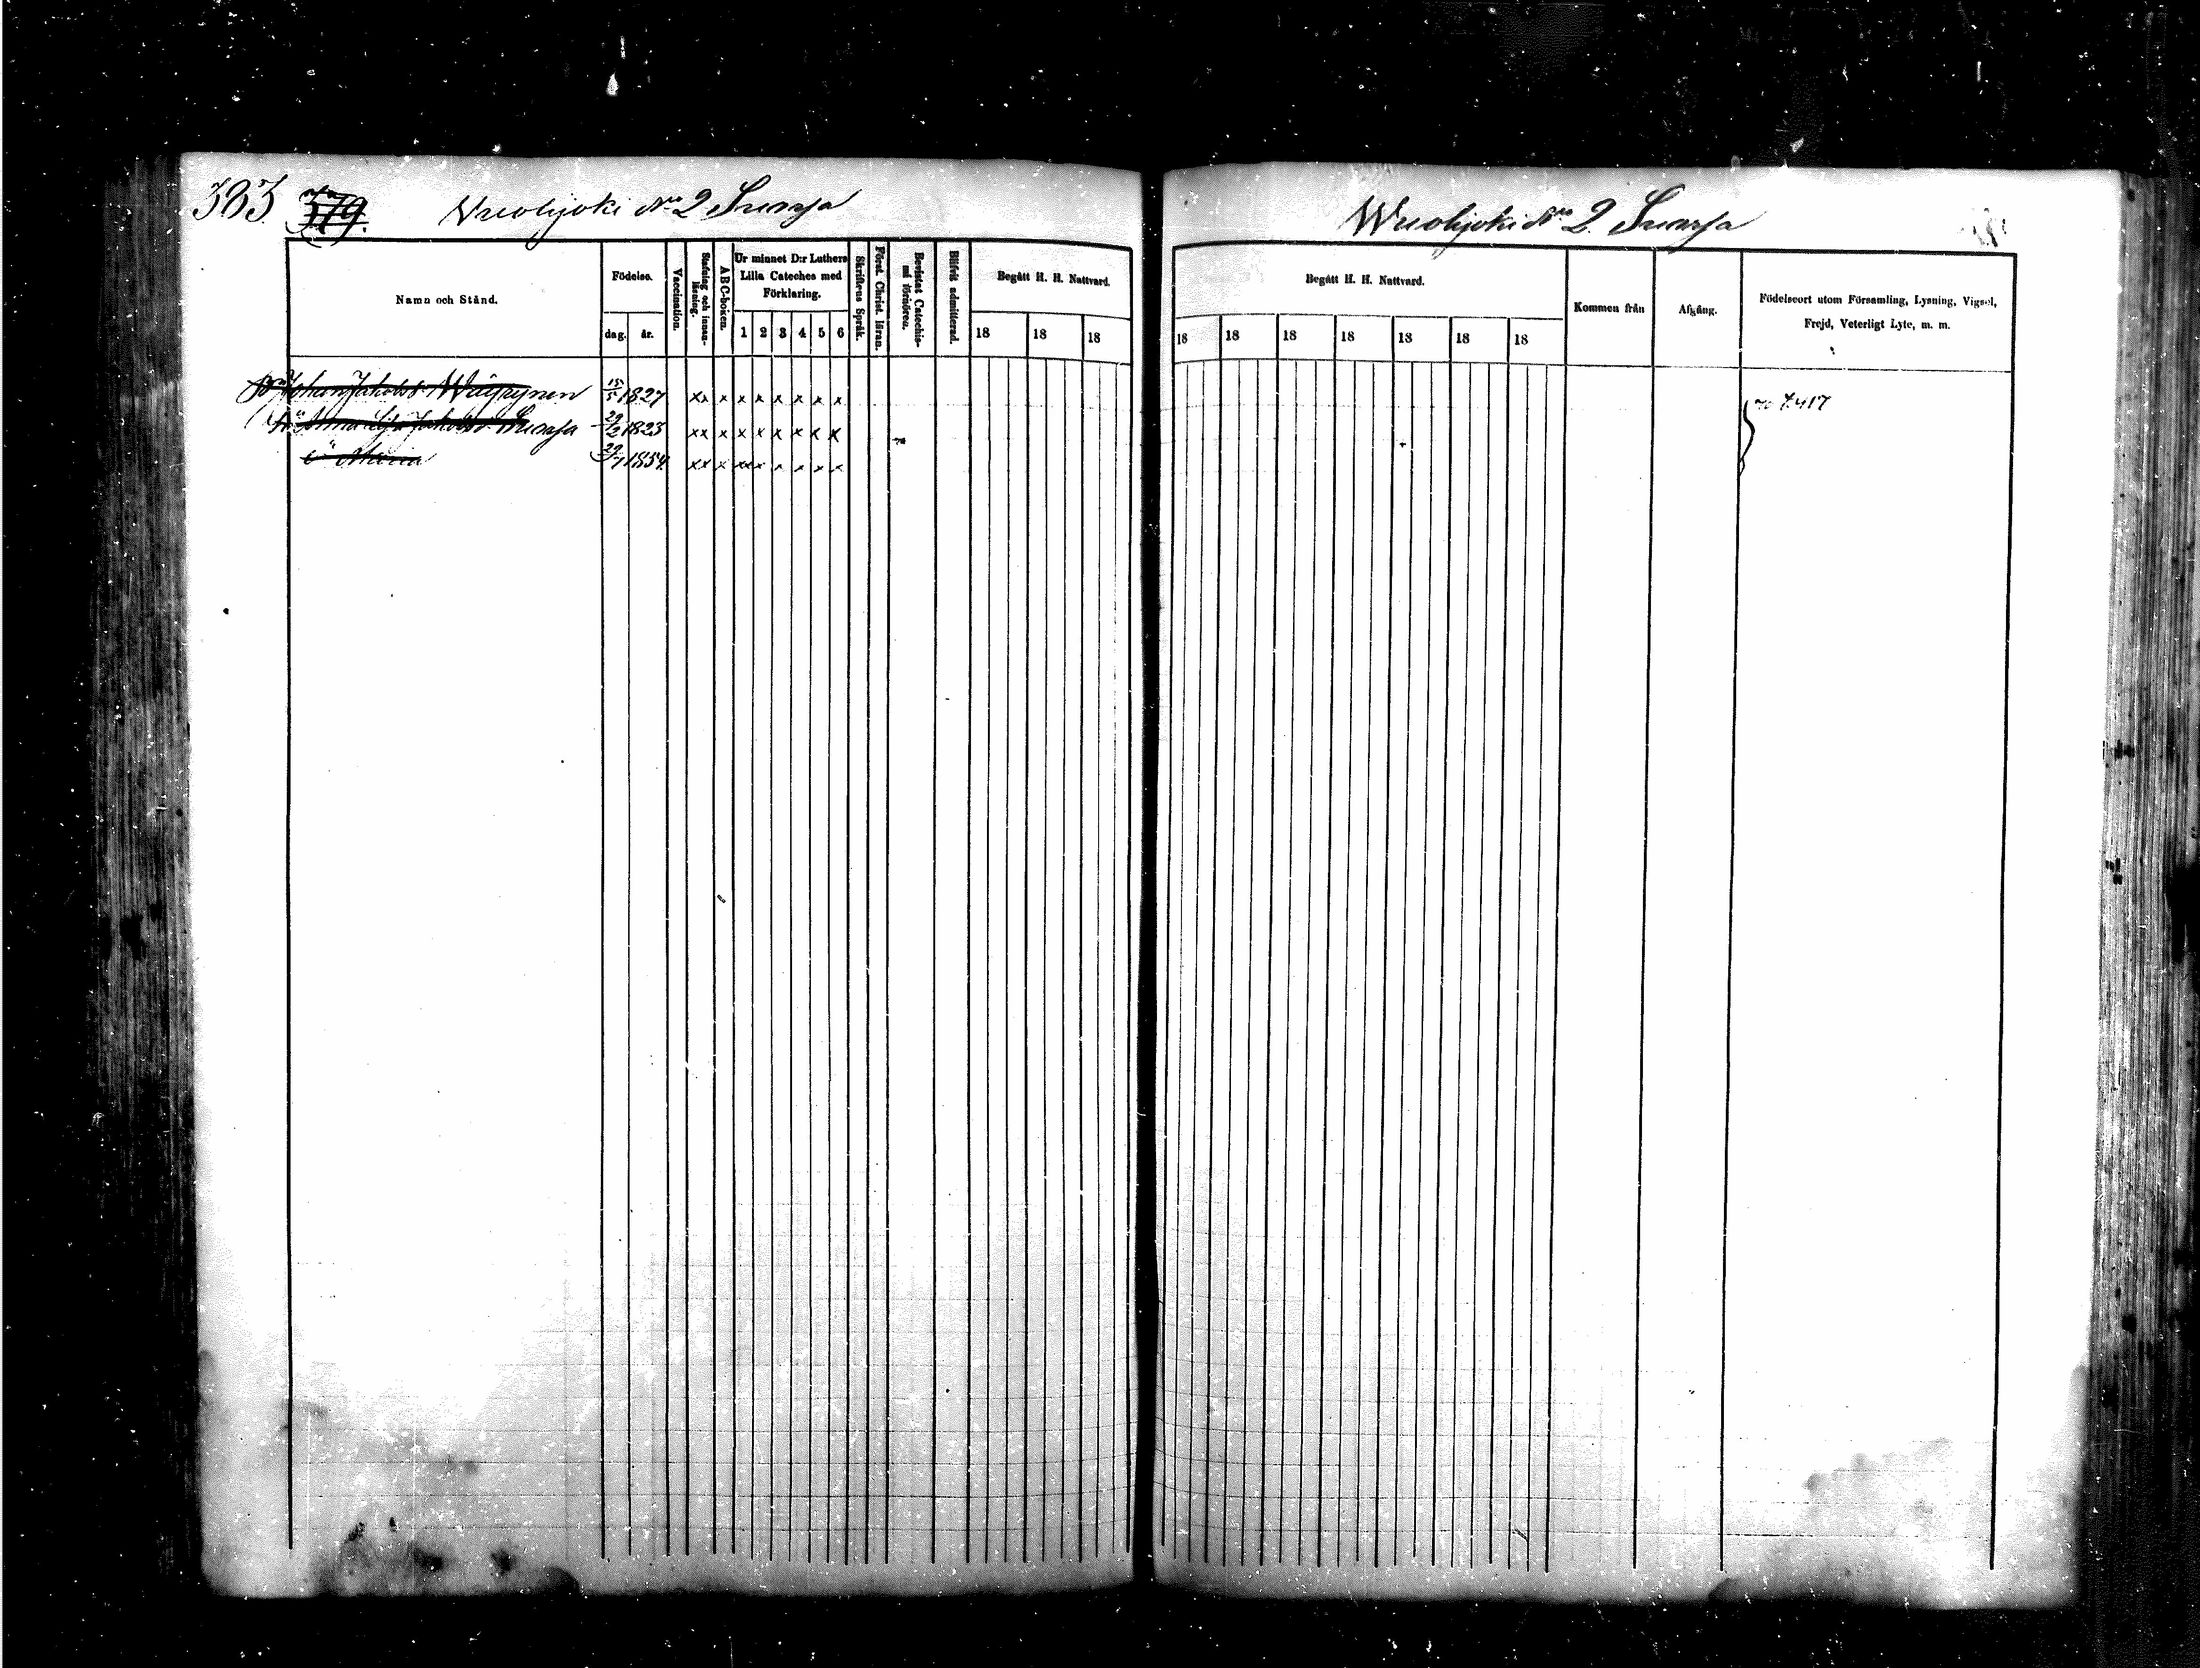 383. 379.
Wuohijoki No 2 Suurja
Namn och Stånd.
Födelse.
dag.
år.
Vaccination.
Stafning och innan-
läsning.
ABC-boken.
Ur minnet D:r Luthers
Lilla Cateches med
Förklaring.
1 2 3 4 5 6
Skriftens Språk.
Först. Christ. läran.
Bevistat Catechis-
mi förhören.
Blifvit admitterad.
Begått H. H. Nattvard.
18 18 18
Johan Jakobss. Wäyrynen 15/5 1827 xx x x x x x x x
Anna Lisa Jakobsd. Suurja 29/2 1823 xx x x x x x x x
Maria 29/7 1854 xx x xx x x x x x
Wuohijoki No 2. Suurja
Begått H. H. Nattvard.
18 18 18 18 18 18 18
Kommen från
Afgång.
Födelseort utom Församling, Lysning, Vigsel,
Frejd, Veterligt Lyte, m. m.
7.417